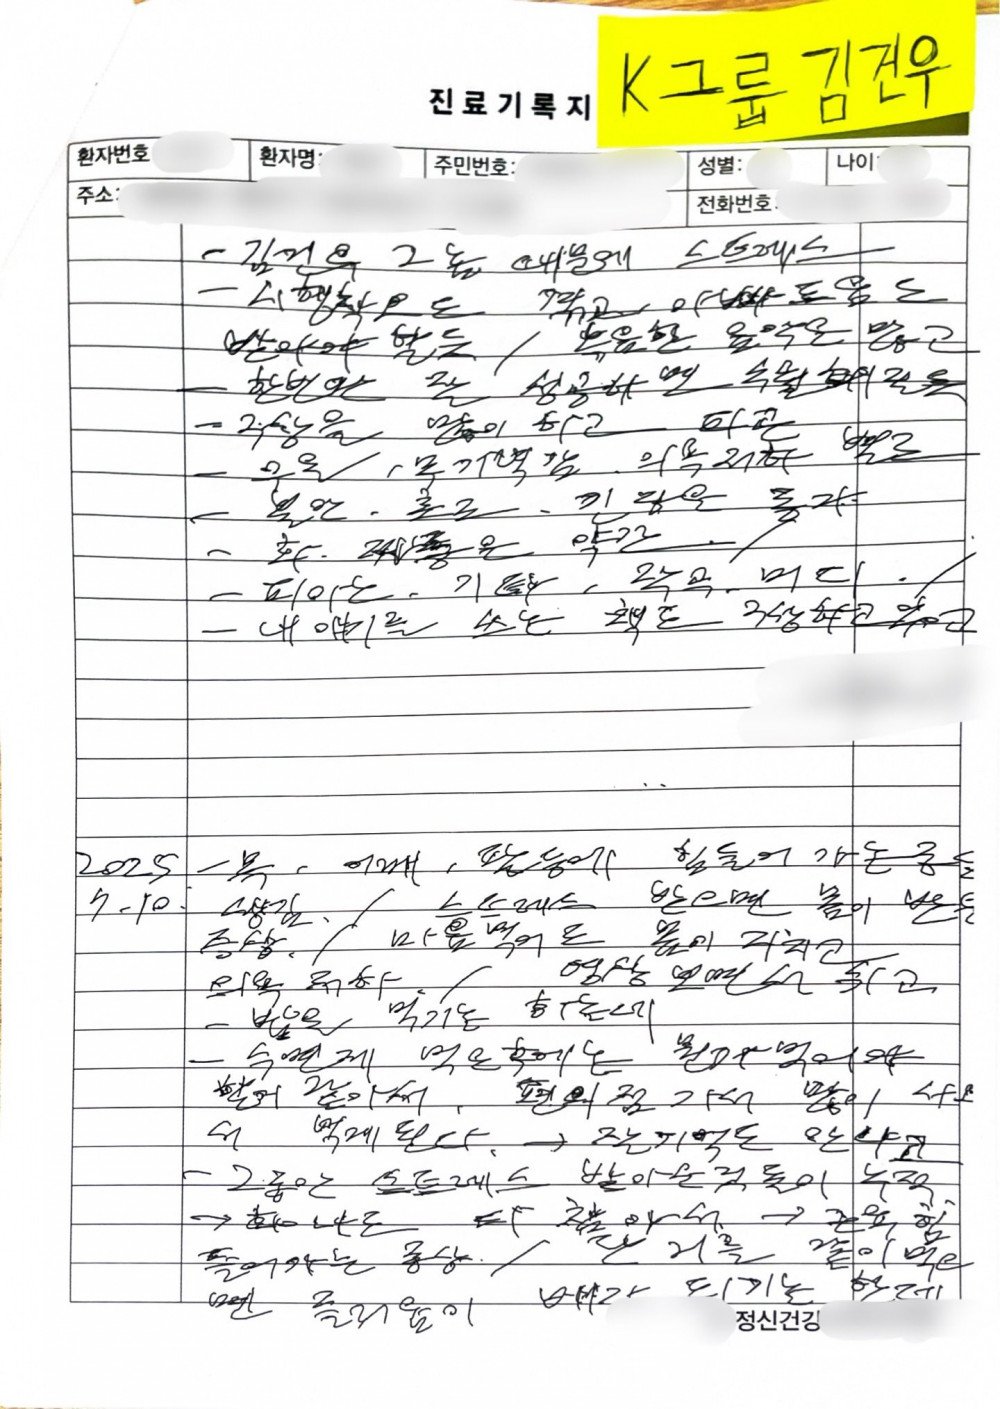 K그룹 김건우
진료기록지
환자번호 환자명: 주민번호: 성별: 나이:
주소: 전화번호:
- 김건우 그놈 때문에 스트레스
- 시행착오도 겪고 아빠 도움도
받아야 할듯 / 녹음한 음악도 많고
- 한번만 잘 성공하면
- 구상을 많이 하고 파고
- 우울 / 무기력감. 의욕저하 별로
- 불안. 초조. 긴장은 통과
- 화. 짜증은 약간. /
- 피아노. 기타, 작곡. 미디. /
- 내 얘기를 쓰는 책도 구상하고 있고
2025 - 목. 어깨. 팔 등에 힘 들어가는 증상
7.10. 생김. / 스트레스 받으면 몸이 받는
증상. / 마음먹어도 몸이 지치고
의욕저하. / 영상 보면서 하고
- 밥을 먹기는 하는데
- 수면제 먹은 후에는 뭔가 먹어야
할거 같아서, 편의점 가서 많이 사
서 먹게 된다. → 잘 기억도 안나고
- 그동안 스트레스 받아온 것들이 누적
→ 화나도 다 참아서. → 근육 힘
들어가는 증상. / 같이 먹으
면 졸리움이 배가 되기는 한데
정신건강